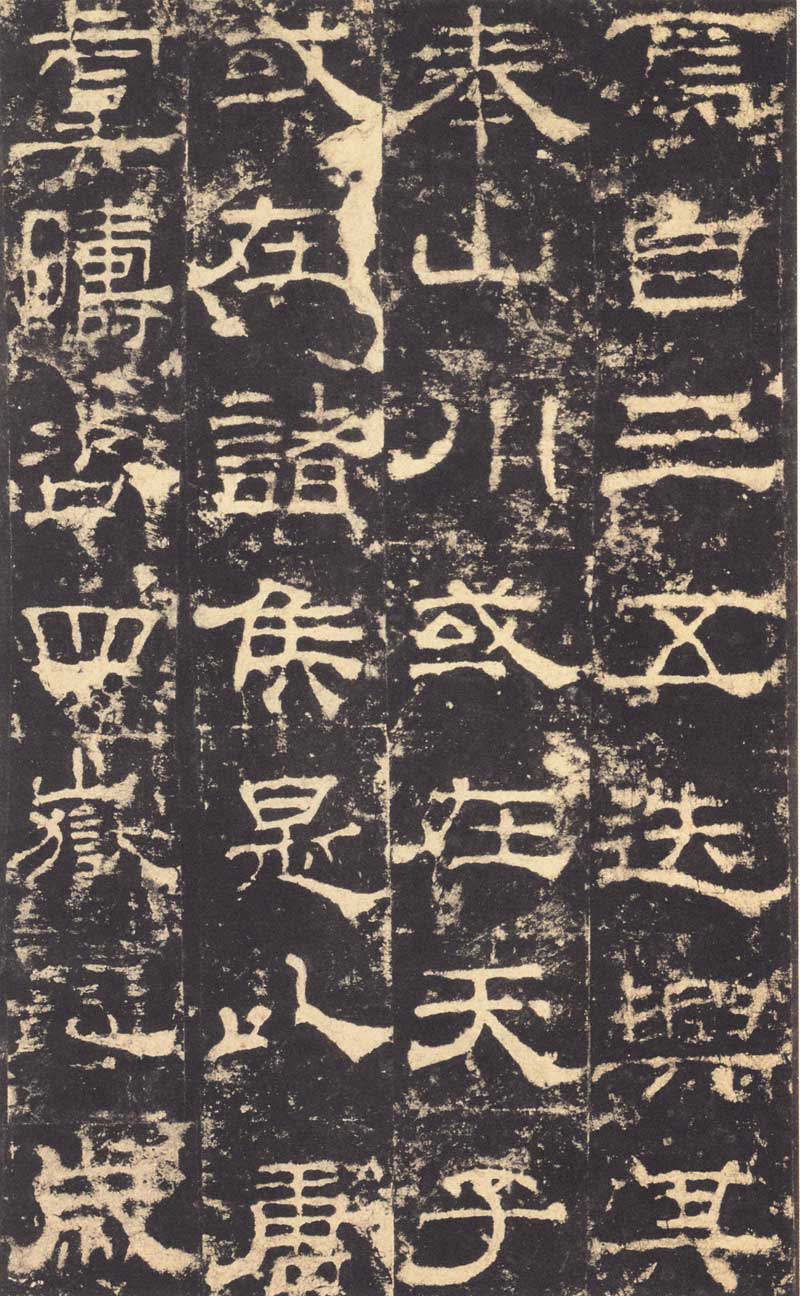 焉自三五迭興其
奉山川或在天子
或在諸侯是以唐
虞疇咨四嶽五歲